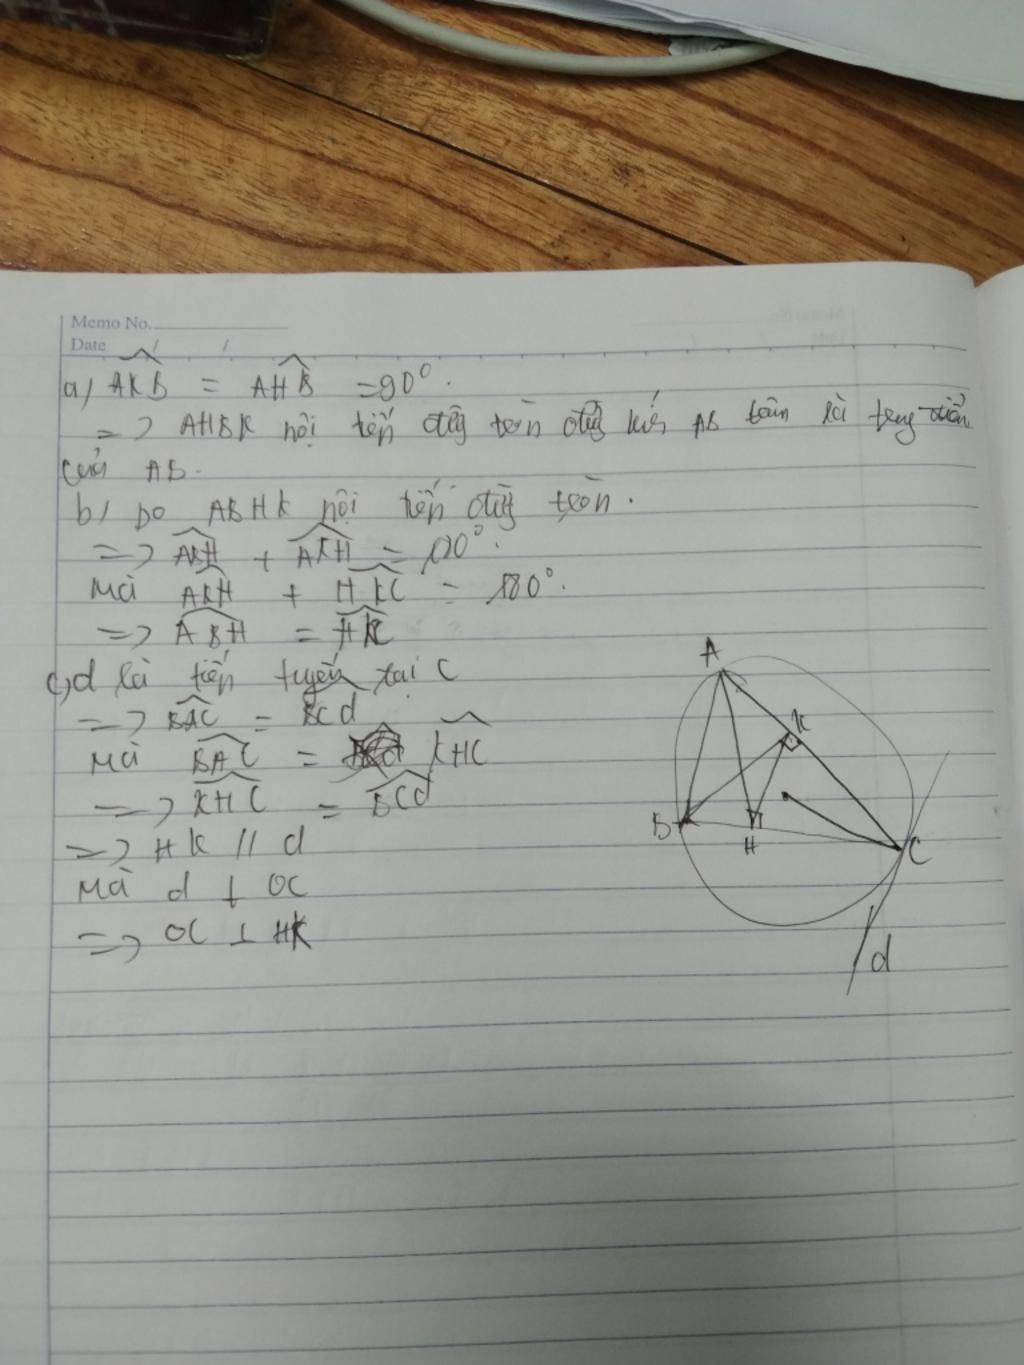 Memo No.
Date / /
a) AKB = AHB = 90°.
=> AHBK nội tiếp đường tròn đường kính AB tâm là trung điểm
của AB.
b) Do ABHK nội tiếp đường tròn.
=> + AKH = 180°.
Mà AKH + HKC = 180°.
=> ABH = HKC
c) d là tiếp tuyến tại C
=> BAC = BCd
Mà BAC = KHC
=> KHC = BCd
=> HK // d
Mà d ⊥ OC
=> OC ⊥ HK
A
K
B
H
C
d